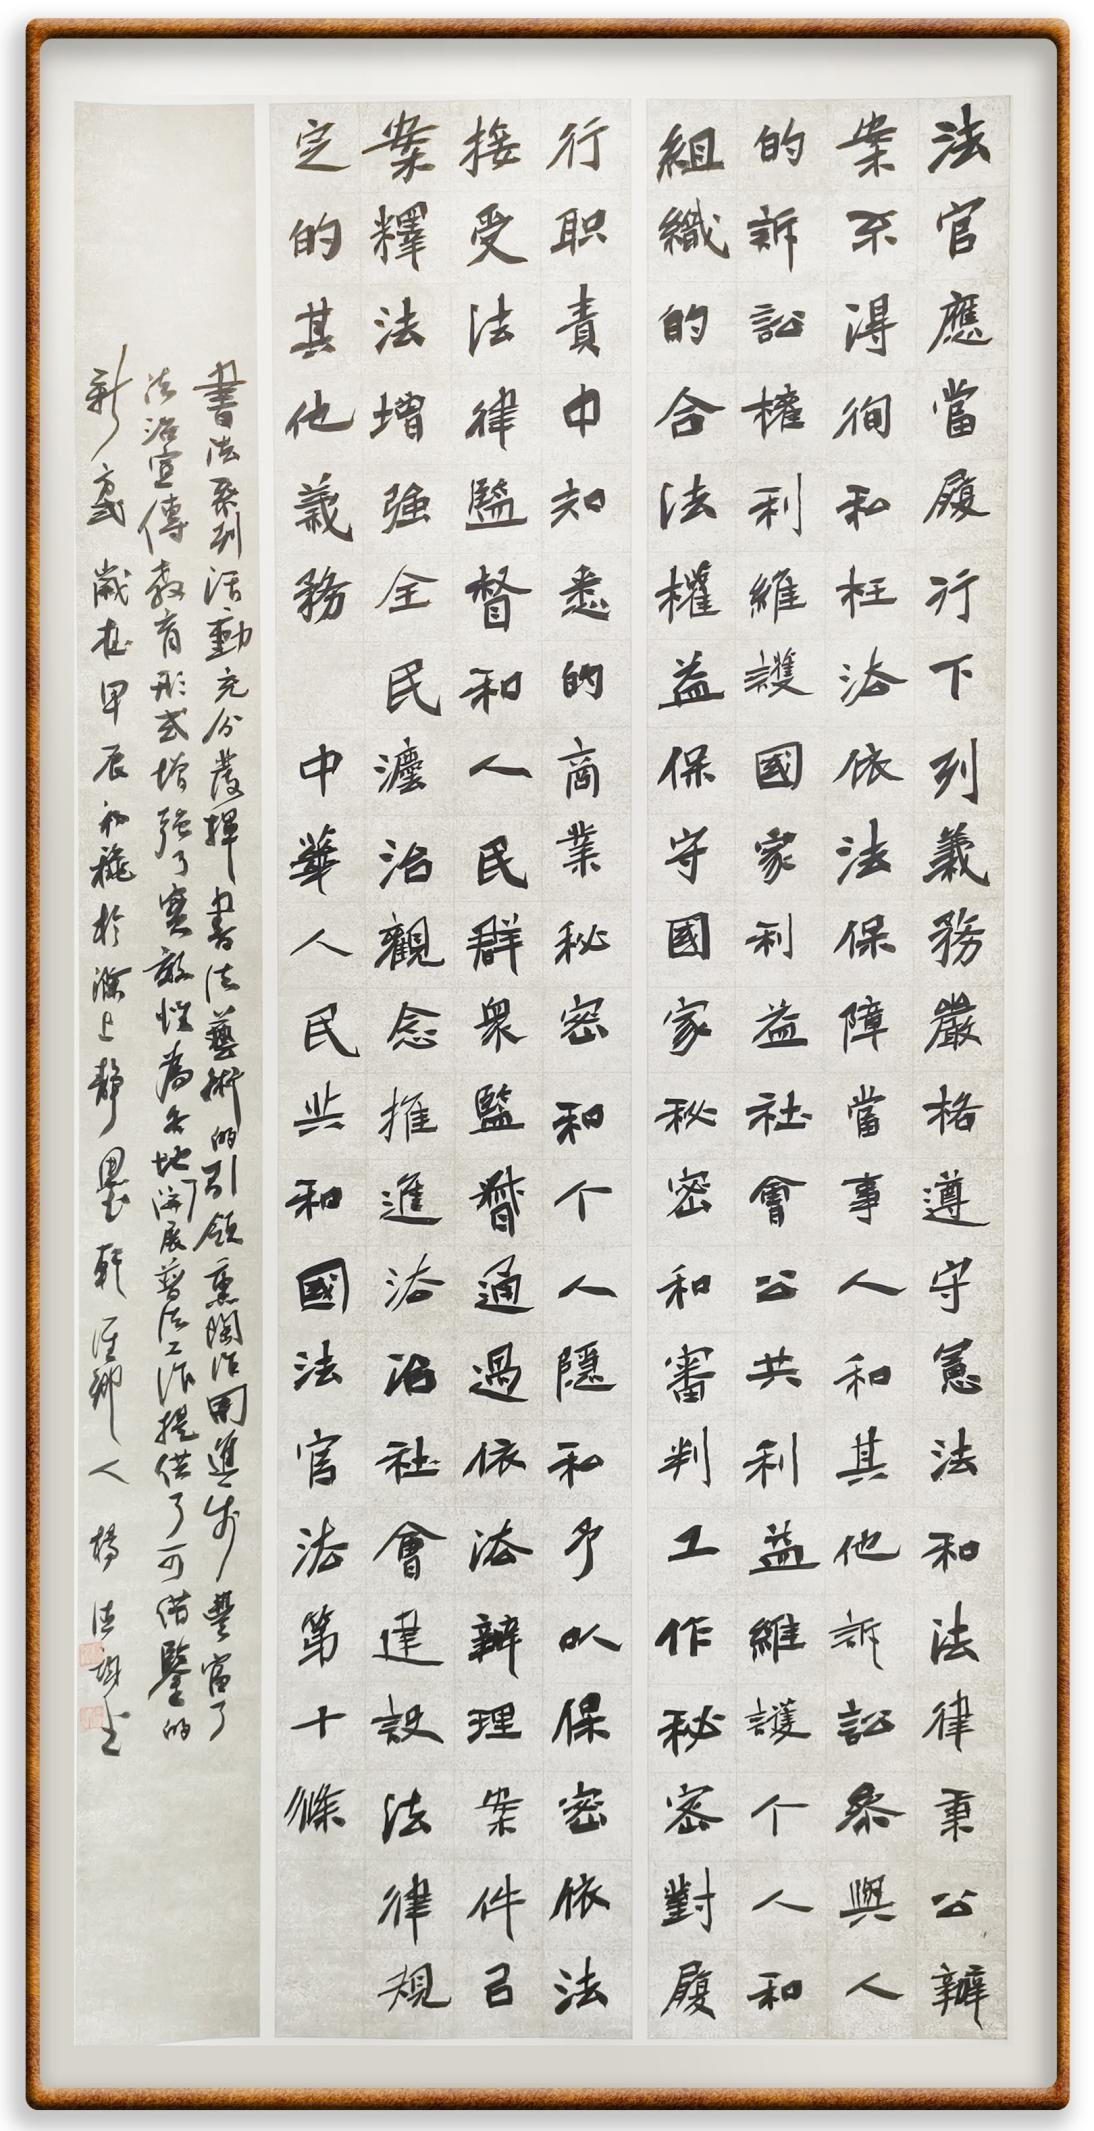 法官應當履行下列義務嚴格遵守憲法和法律秉公辦
案不得徇私枉法依法保障當事人和其他訴訟參與人
的訴訟權利維護國家利益社會公共利益維護个人和
組織的合法權益保守國家秘密和審判工作秘密對履
行职責中知悉的商業秘密和个人隱私予以保密依法
接受法律監督和人民群衆監督通過依法辦理案件以
案釋法增強全民法治觀念推進法治社會建設法律規
定的其他義務 中華人民共和國法官法第十條
書法系列活動充分發揮書法藝術的引領熏陶作用進步豐富了
法治宣傳教育形式增強了實效性為各地開展普法工作提供了可借鑒的
新 歲在甲辰初穐於滌上靜墨軒淮鄉人楊法